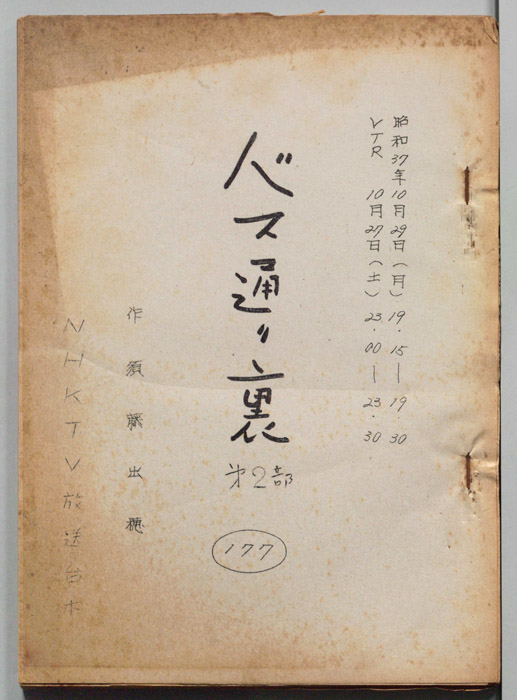 昭和37年10月29日(月)19.15―19.30
VTR 10月27日(土)23.00―23.30
バス通り裏
第2部
177
作 須藤出穂
NHKTV放送台本